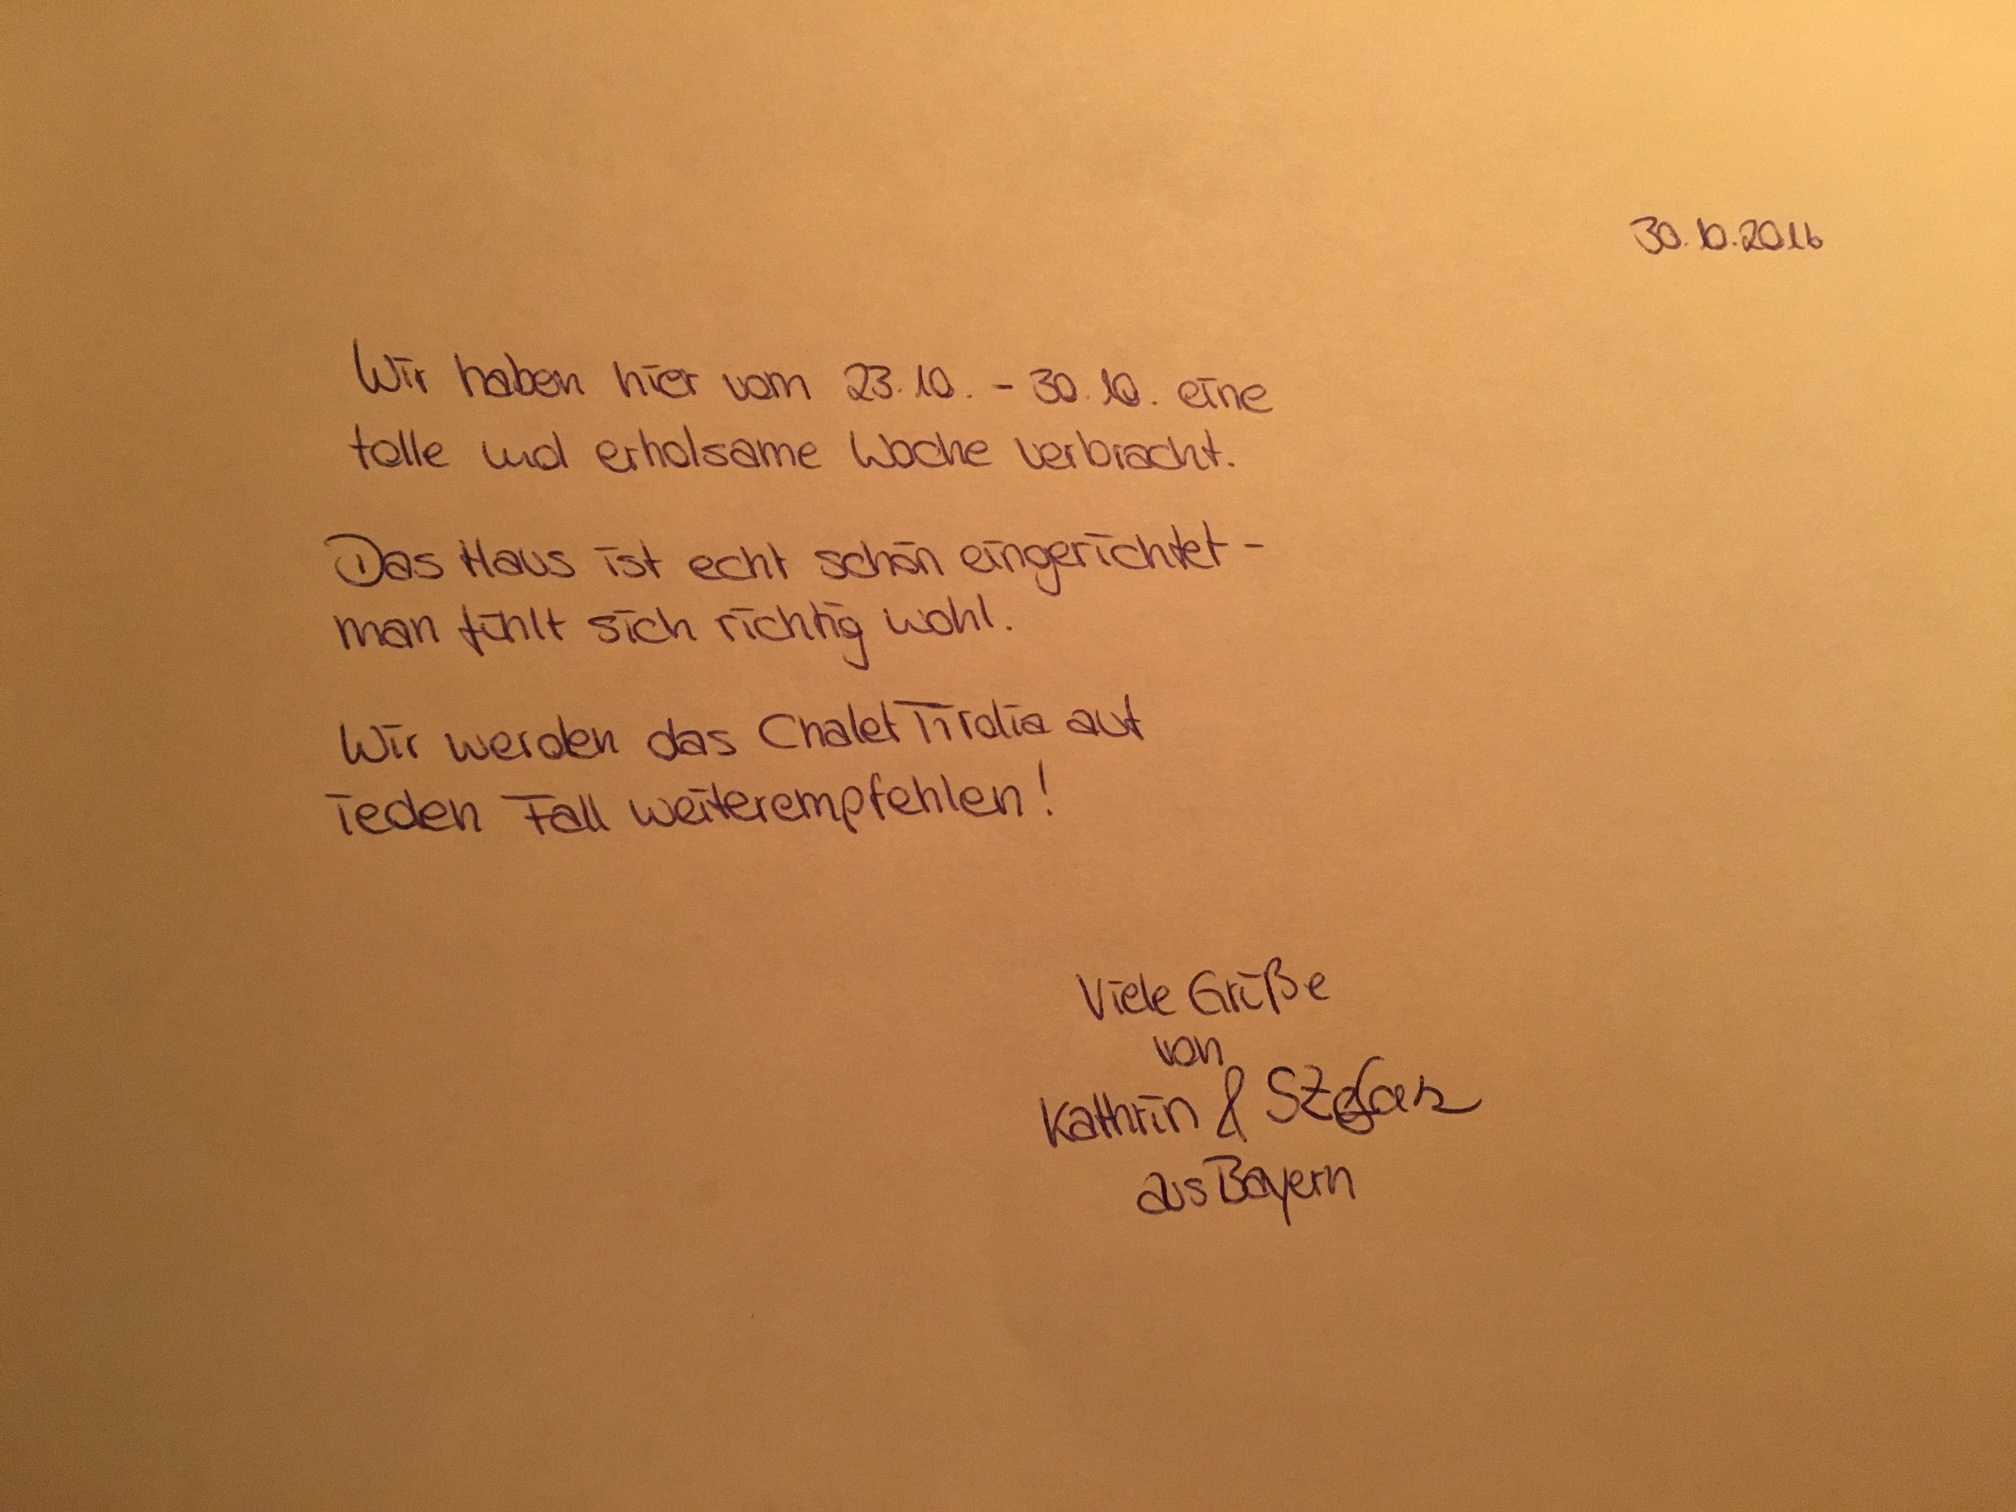 30.10.2016
Wir haben hier vom 23.10. - 30.10. eine
tolle und erholsame Woche verbracht.
Das Haus ist echt schön eingerichtet -
man fühlt sich richtig wohl.
Wir werden das Chalet Tirolia auf
jeden Fall weiterempfehlen!
Viele Grüße
von
Kathrin & Stefan
aus Bayern